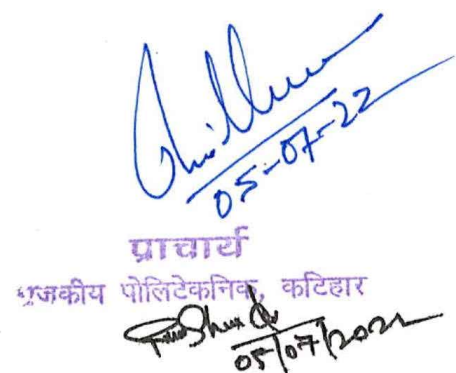 05-07-22
प्राचार्य
राजकीय पोलिटेकनिक, कटिहार
05/07/2022